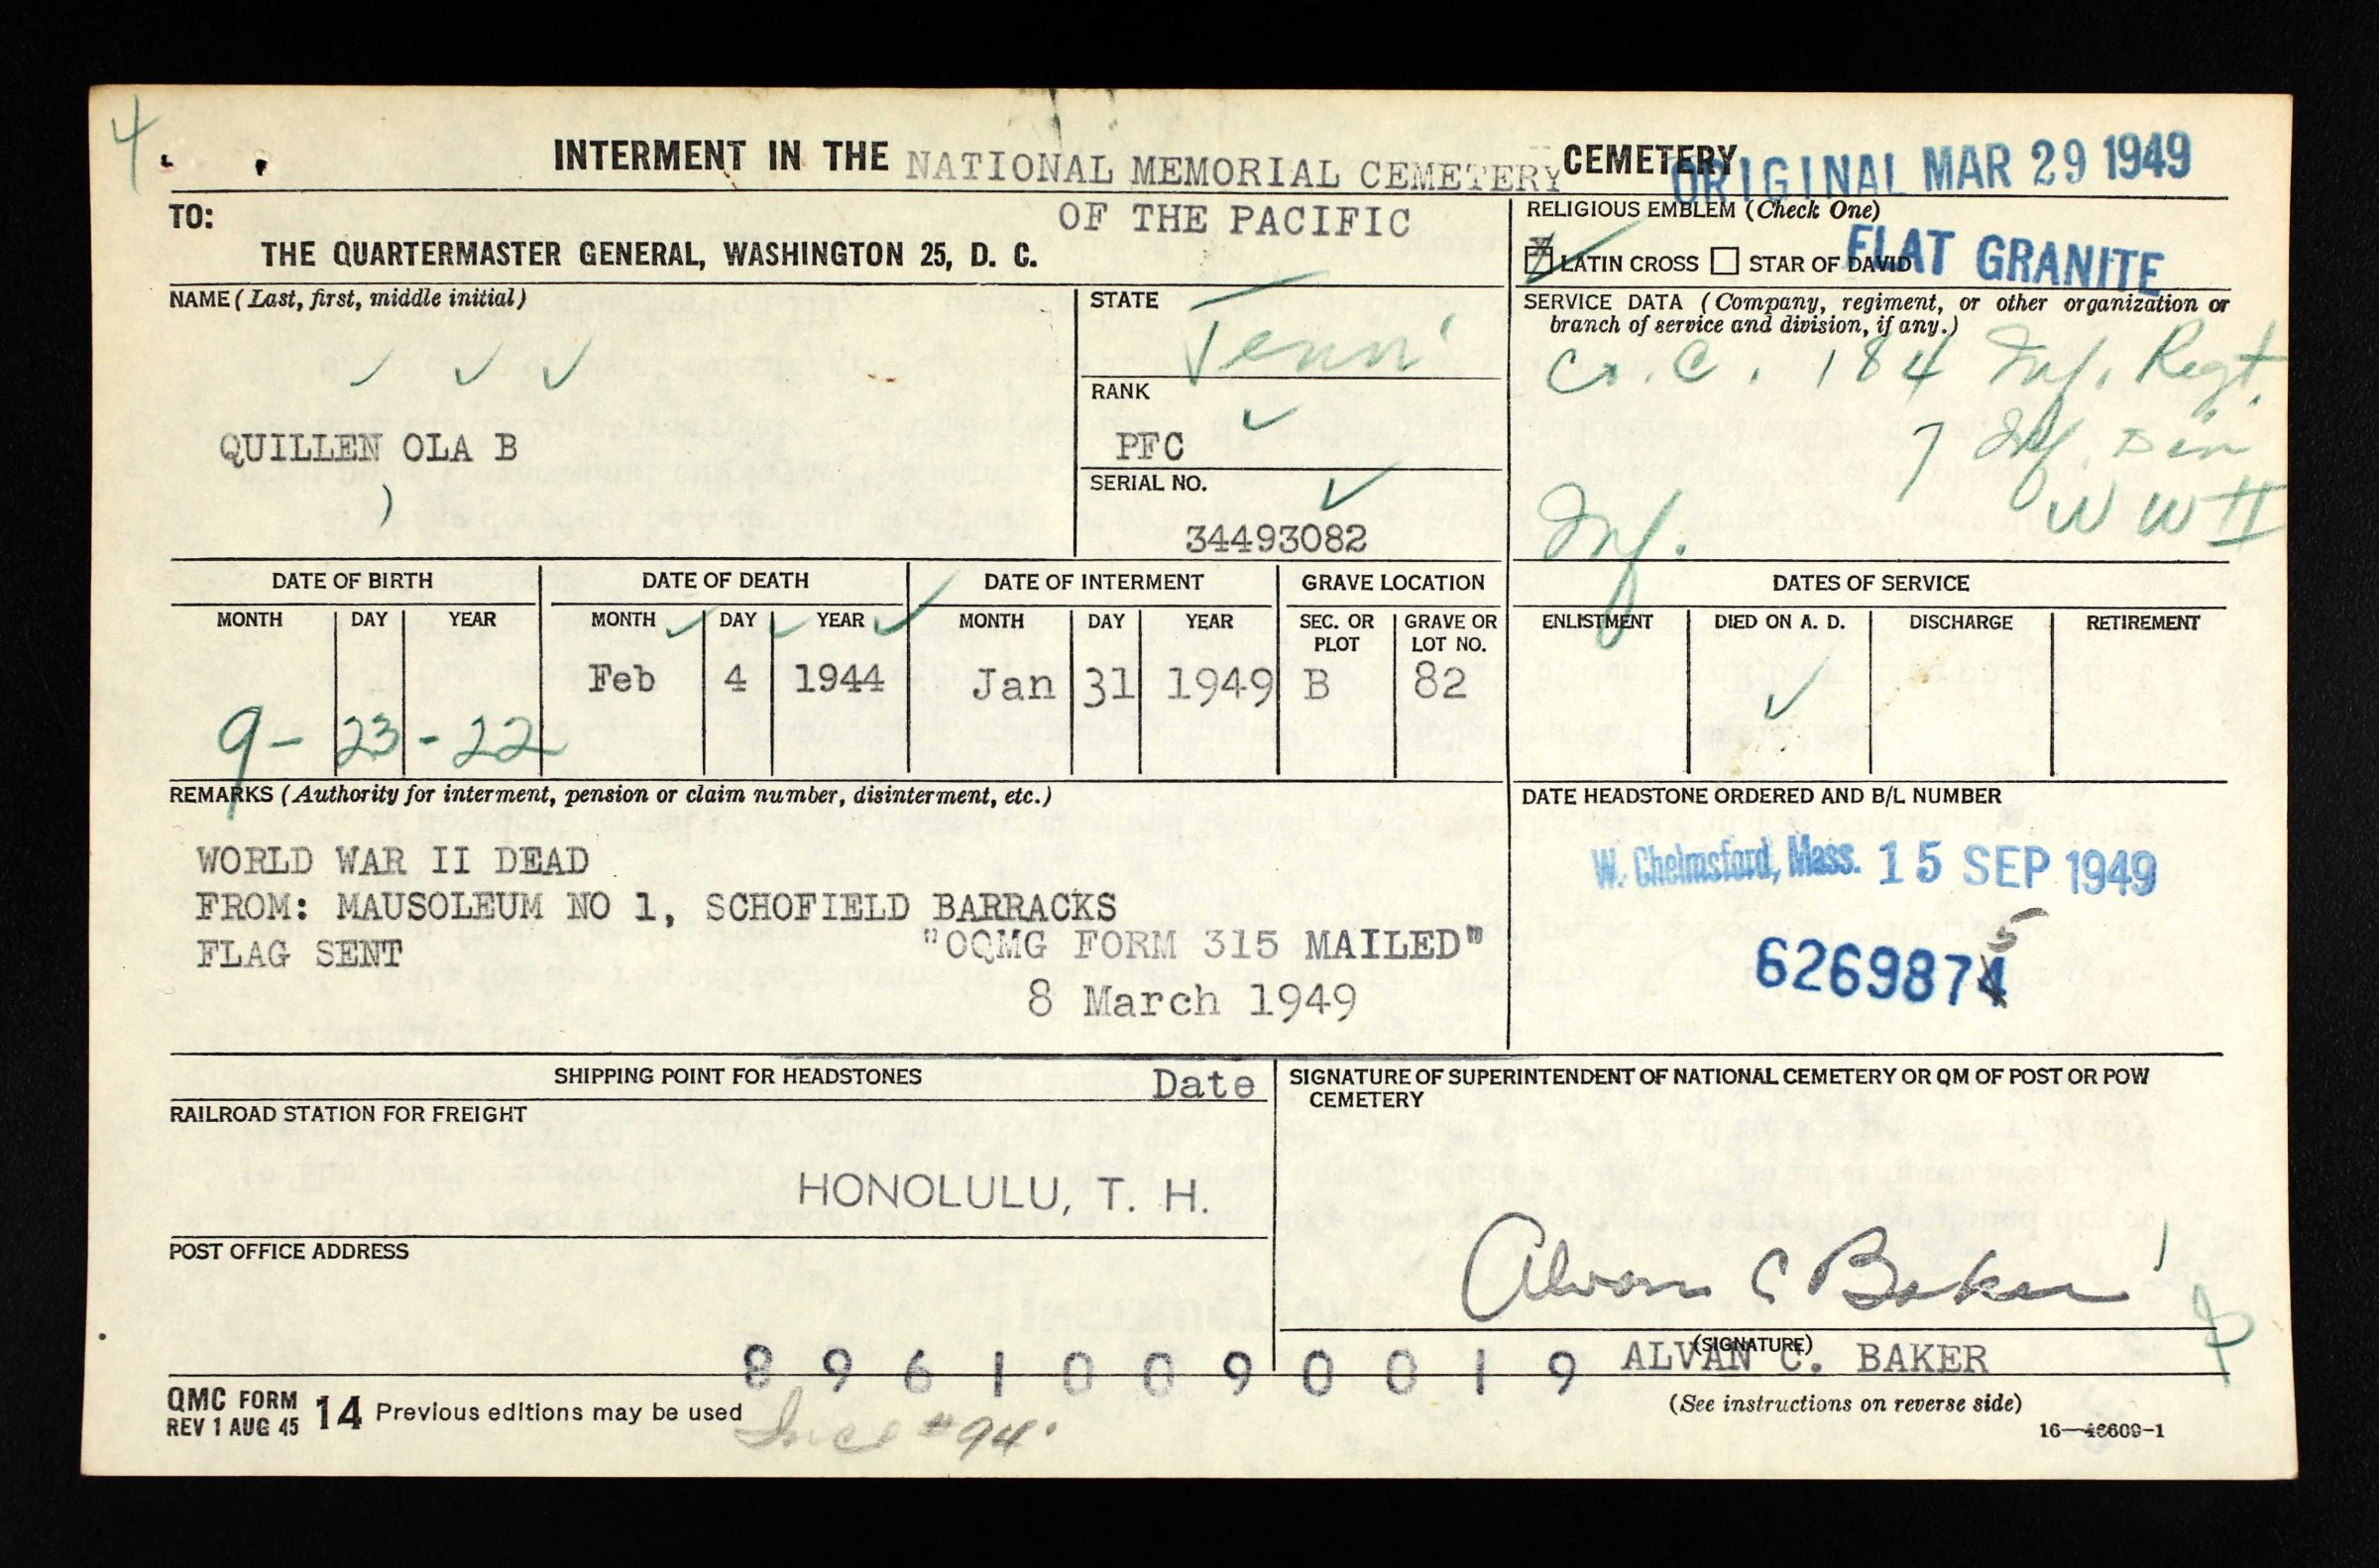 4
INTERMENT IN THE NATIONAL MEMORIAL CEMETERY CEMETERY
ORIGINAL MAR 29 1949
TO:
OF THE PACIFIC
THE QUARTERMASTER GENERAL, WASHINGTON 25, D. C.
RELIGIOUS EMBLEM (Check One)
LATIN CROSS STAR OF DAVID
FLAT GRANITE
NAME (Last, first, middle initial)
QUILLEN OLA B
STATE
Tenn
RANK
PFC
SERIAL NO.
34493082
SERVICE DATA (Company, regiment, or other organization or
branch of service and division, if any.)
Co. C. 184 Inf. Regt.
7 Inf. Div
WW II
Inf.
DATE OF BIRTH
MONTH DAY YEAR
9- 23 - 22
DATE OF DEATH
MONTH DAY YEAR
Feb 4 1944
DATE OF INTERMENT
MONTH DAY YEAR
Jan 31 1949
GRAVE LOCATION
SEC. OR PLOT
GRAVE OR LOT NO.
B 82
DATES OF SERVICE
ENLISTMENT DIED ON A. D. DISCHARGE RETIREMENT
REMARKS (Authority for interment, pension or claim number, disinterment, etc.)
WORLD WAR II DEAD
FROM: MAUSOLEUM NO 1, SCHOFIELD BARRACKS
FLAG SENT
"OQMG FORM 315 MAILED"
8 March 1949
DATE HEADSTONE ORDERED AND B/L NUMBER
W. Chelmsford, Mass. 15 SEP 1949
5
6269874
SHIPPING POINT FOR HEADSTONES Date
RAILROAD STATION FOR FREIGHT
HONOLULU, T. H.
POST OFFICE ADDRESS
SIGNATURE OF SUPERINTENDENT OF NATIONAL CEMETERY OR QM OF POST OR POW
CEMETERY
Alvan C Baker
(SIGNATURE)
ALVAN C. BAKER
89610090019
QMC FORM
REV 1 AUG 45
14 Previous editions may be used
Incl #94
(See instructions on reverse side)
16—46609-1